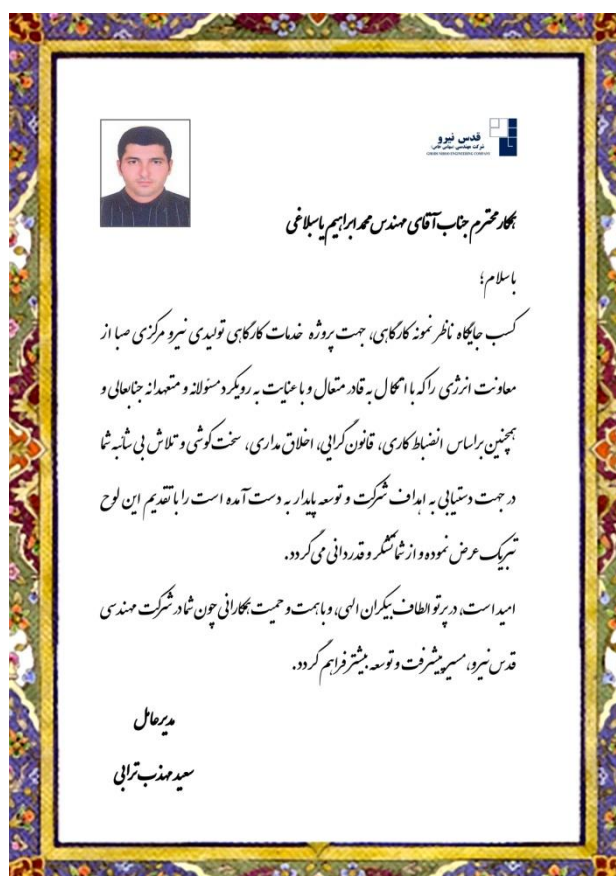 قدس نیرو
شرکت مهندسی (سهامی خاص)
GHODS NIROO ENGINEERING COMPANY
همکار محترم جناب آقای مهندس محمد ابراهیم یاسبلاغی
باسلام؛
کسب جایگاه ناظر نمونه کارگاهی، جهت پروژه خدمات کارگاهی تولیدی نیرو مرکزی صبا از
معاونت انرژی را که با اتکال به قادر متعال و با عنایت به رویکرد مسئولانه و متعهدانه جنابعالی و
همچنین براساس انضباط کاری، قانون گرایی، اخلاق مداری، سخت کوشی و تلاش بی شائبه شما
در جهت دستیابی به اهداف شرکت و توسعه پایدار به دست آمده است را با تقدیم این لوح
تبریک عرض نموده و از شما تشکر و قدردانی می گردد.
امید است، در پرتو الطاف بیکران الهی، و با همت و حمیت همکارانی چون شما در شرکت مهندسی
قدس نیرو، مسیر پیشرفت و توسعه بیشتر فراهم گردد.
مدیرعامل
سعید مهذب ترابی